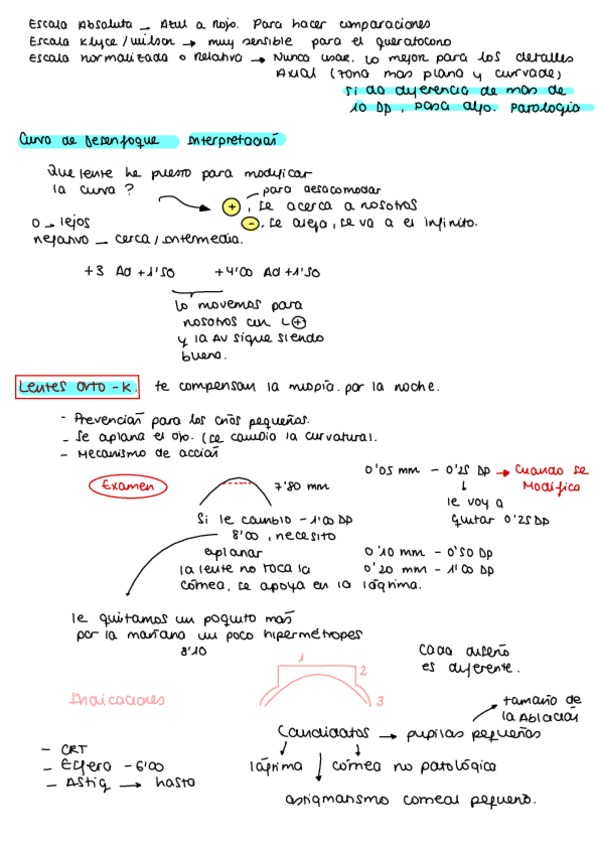 Escala Absoluta _ Azul a rojo. Para hacer comparaciones
Escala Klyce / wilson → muy sensible para el queratocono
Escala normalizada o Relativa → Nunca usar. Lo mejor para los detalles
Axial (zona mas plana y curvada)
Si da diferencia de mas de
10 DP, pasa algo. Patologia
Curva de Desenfoque Interpretación
Que lente he puesto para modificar
la curva?
para desacomodar
+, se acerca a nosotros
0 _ lejos
-. se aleja, se va a el infinito.
negativo _ cerca / intermedia.
+3 Ad +1'50 +4'00 Ad +1'50
lo movemos para
nosotros con L +
y la AV sigue siendo
buena.
Lentes Orto - K. te compensan la miopía. por la noche.
- Prevención para los críos pequeños.
- Se aplana el ojo. (se cambia la curvatura).
- Mecanismo de acción
0'05 mm - 0'25 DP → Cuando se
Modifica
Examen
7'80 mm
le voy a
quitar 0'25 DP
Si le cambio - 1'00 DP
8'00, necesito
aplanar
0'10 mm - 0'50 DP
la lente no toca la
0'20 mm - 1'00 DP
córnea, se apoya en la lágrima.
le quitamos un poquito más
por la mañana un poco hipermétropes
8'10
Cada diseño
es diferente.
1
2
3
Indicaciones
tamaño de
la Ablación
Candidatos → pupilas pequeñas
- CRT
- Esfera - 6'00
- Astig → hasta
lágrima
córnea no patológica
astigmatismo corneal pequeño.